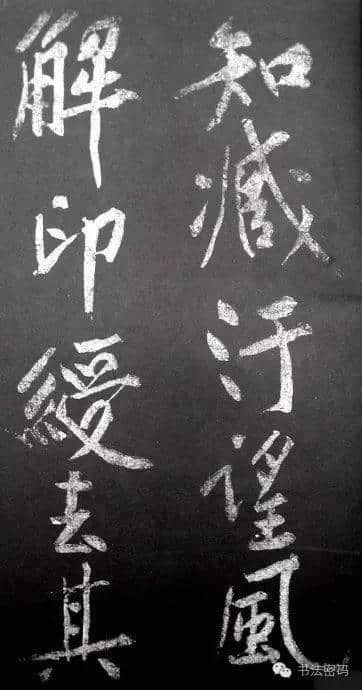 知臧汙望風
解印綬去其
书法密码